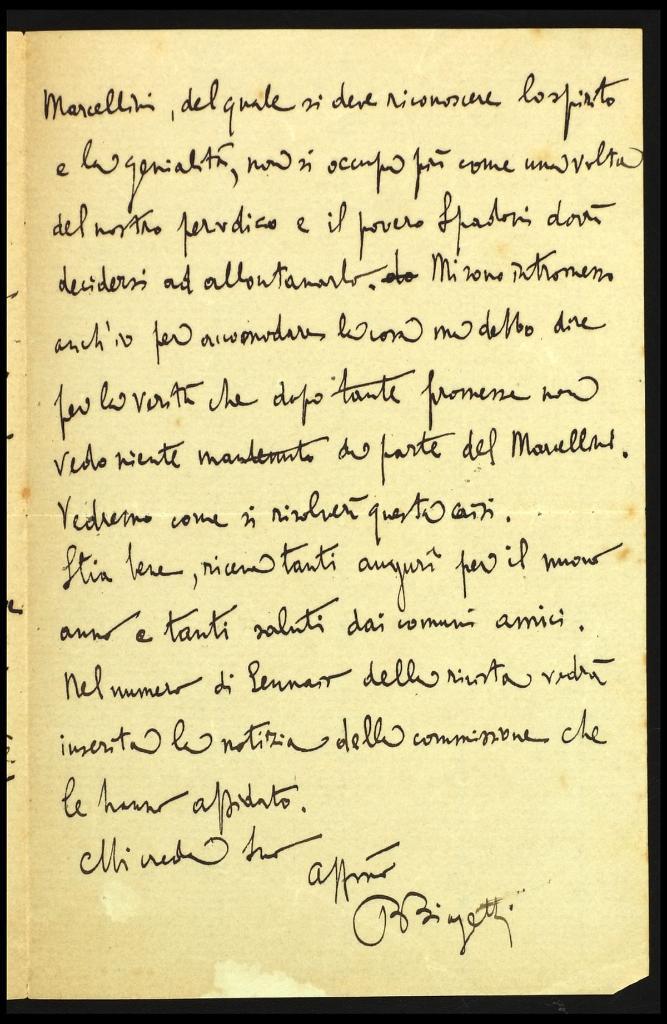 Marcellini, del quale si deve riconoscere lo spirito
e la genialità, non si occupa più come una volta
del nostro periodico e il povero Spadoni dovrà
decidersi ad allontanarlo. Mi sono intromesso
anch'io per accomodare la cosa ma debbo dire
per la verità che dopo tante promesse non
vedo niente mantenuto da parte del Marcellini.
Vedremo come si risolverà questa crisi.
Stia bene, riceva tanti augurî per il nuovo
anno e tanti saluti dai comuni amici.
Nel numero di Gennaio della rivista vedrà
inserita la notizia della commissione che
le hanno affidato.
Mi creda Suo
Affmo